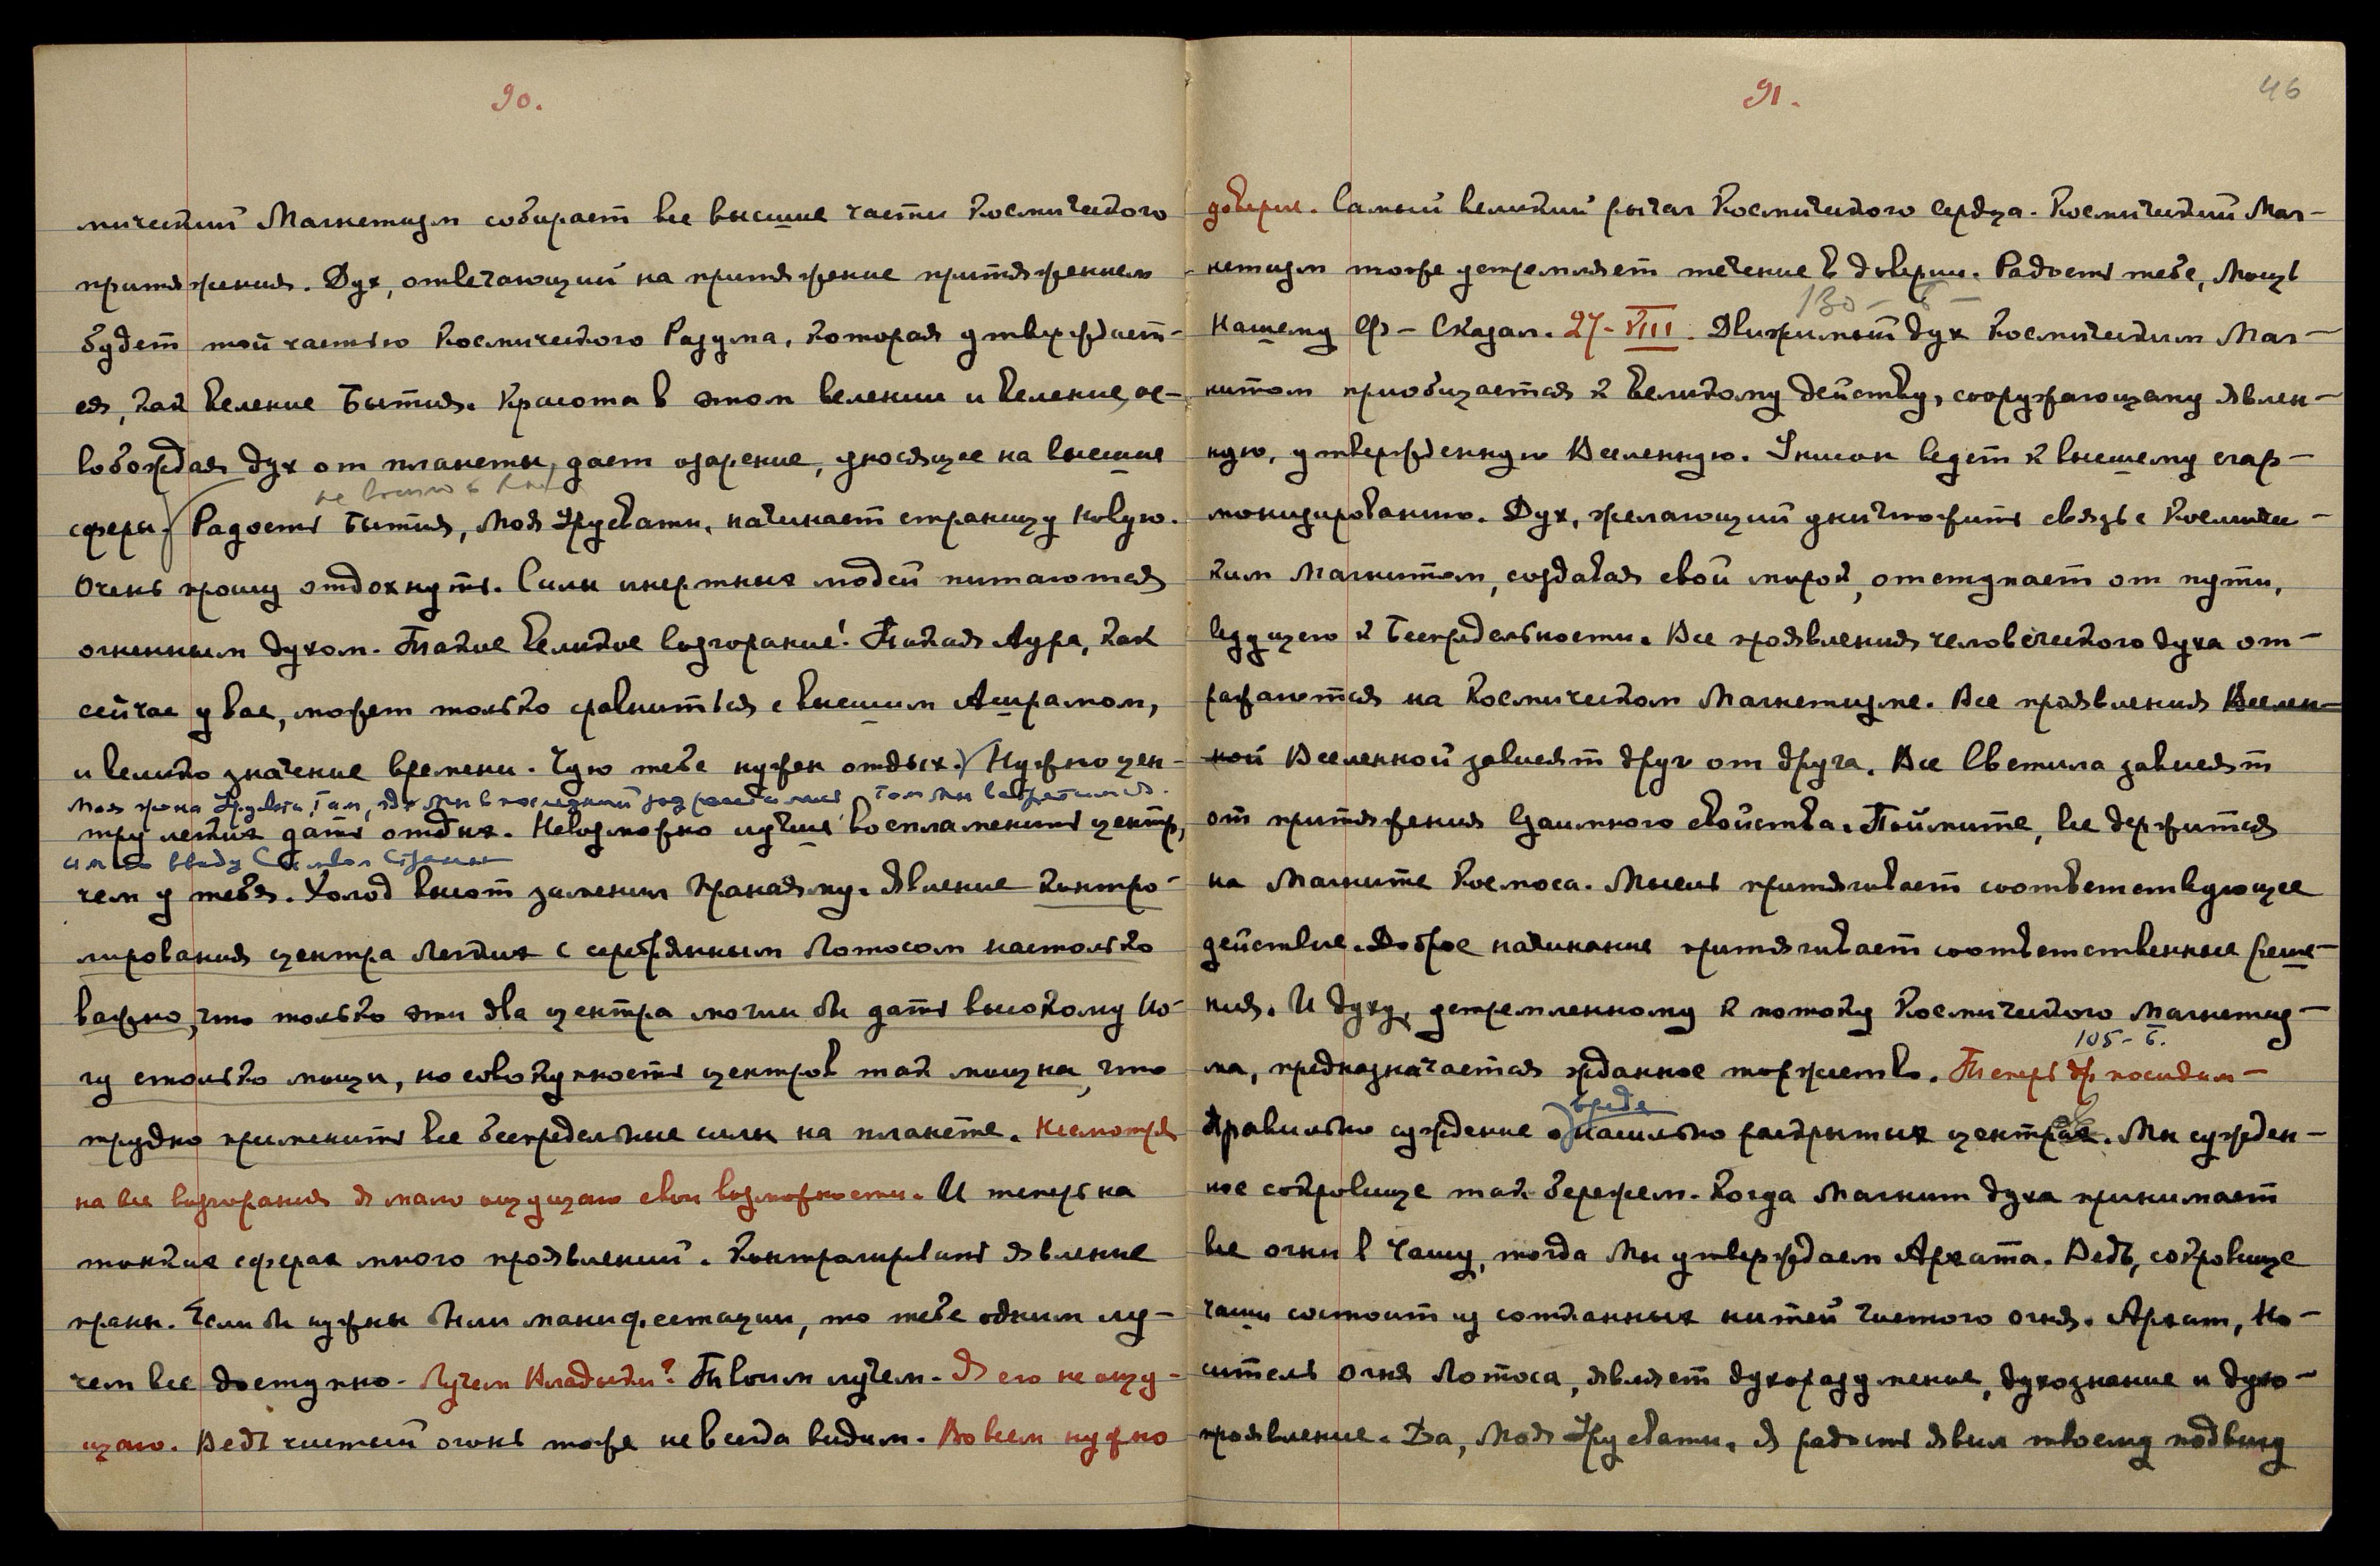 90.
мический Магнетизм собирает все высшие части Космического
притяжения. Дух, отвечающий на притяжение притяжением
будет той частью Космического Разума, которая утверждает-
ся, как веление Бытия. Красота в этом велении и веление, ос-
вобождая дух от планеты, дает озарение, уносящее на высшие
не вошло в
сферы. Радость Бытия, Моя Урусвати, начинает страницу новую.
Очень прошу отдохнуть. Силы инертных людей питаются
огненным духом. Такое великое возгорание! Такая Аура, как
сейчас у вас, может только сравниться с высшим Ашрамом,
и велико значение времени. Чую тебе нужен отдых.) Нужно цен-
Моя жена Урусвати, там, где мы в последний раз расстались, там мы встретимся.
тру легких дать отдых. Невозможно лучше воспламенить центр,
ввиду
чем у тебя. Холод высот заменил Пранаяму. Явление контро-
лирования центра легких с серебрянным Лотосом настолько
важно, что только эти два центра могли бы дать высокому Ио-
гу столько мощи, но совокупность центров так мощна, что
трудно применить все беспредельные силы на планете. Несмотря
на все возгорания я мало ощущаю свои возможности. И теперь на
тонких сферах много проявлений. Контролировать явление
праны. Если бы нужны были манифестации, то тебе одним лу-
чем все доступно. Лучем Владыки? Твоим лучем. Я его не ощу-
щаю. Ведь чистый огонь тоже не всегда видим. Во всем нужно
91.
46
доверие. Самый великий рычаг Космического Сердца. Космический Маг-
нетизм тоже устремляет течение в доверии. Радость тебе, Мощь
130 - Б -
Нашему Ф - Сказал. 27-VIII. Движимый дух Космическим Маг-
нитом приобщается к великому действу, сооружающему явлен-
ную, утвержденную Вселенную. Унисон ведет к высшему сгар-
монизированию. Дух, желающий уничтожить связь с Космичес-
ким Магнитом, создавая свой мирок, отступает от пути,
ведущего к Беспредельности. Все проявления человеческого духа от-
ражаются на Космическом Магнетизме. Все проявления Вселен-
ной Вселенной зависят друг от друга. Все Светила зависят
от притяжения взаимного свойства. Поймите, все держится
на Магните Космоса. Мысль притягивает соответствующее
действие. Доброе начинание притягивает соответственные реше-
ния. И духу, устремленному к потоку Космического Магнетиз-
105 - Б.
ма, предназначается жданное торжество. Теперь др. посидим -
вреде
Правильно суждение о насильно раскрытых центрах. Мы сужден-
ное сокровище так бережем. Когда Магнит духа принимает
все огни в Чашу, тогда Мы утверждаем Архата. Ведь, сокровище
чаши состоит из сотканных нитей чистого огня. Архат, Но-
ситель огня Лотоса, являет духоразумение, духознание и духо-
проявление. Да, Моя Урусвати, Я радость явил твоему подвигу